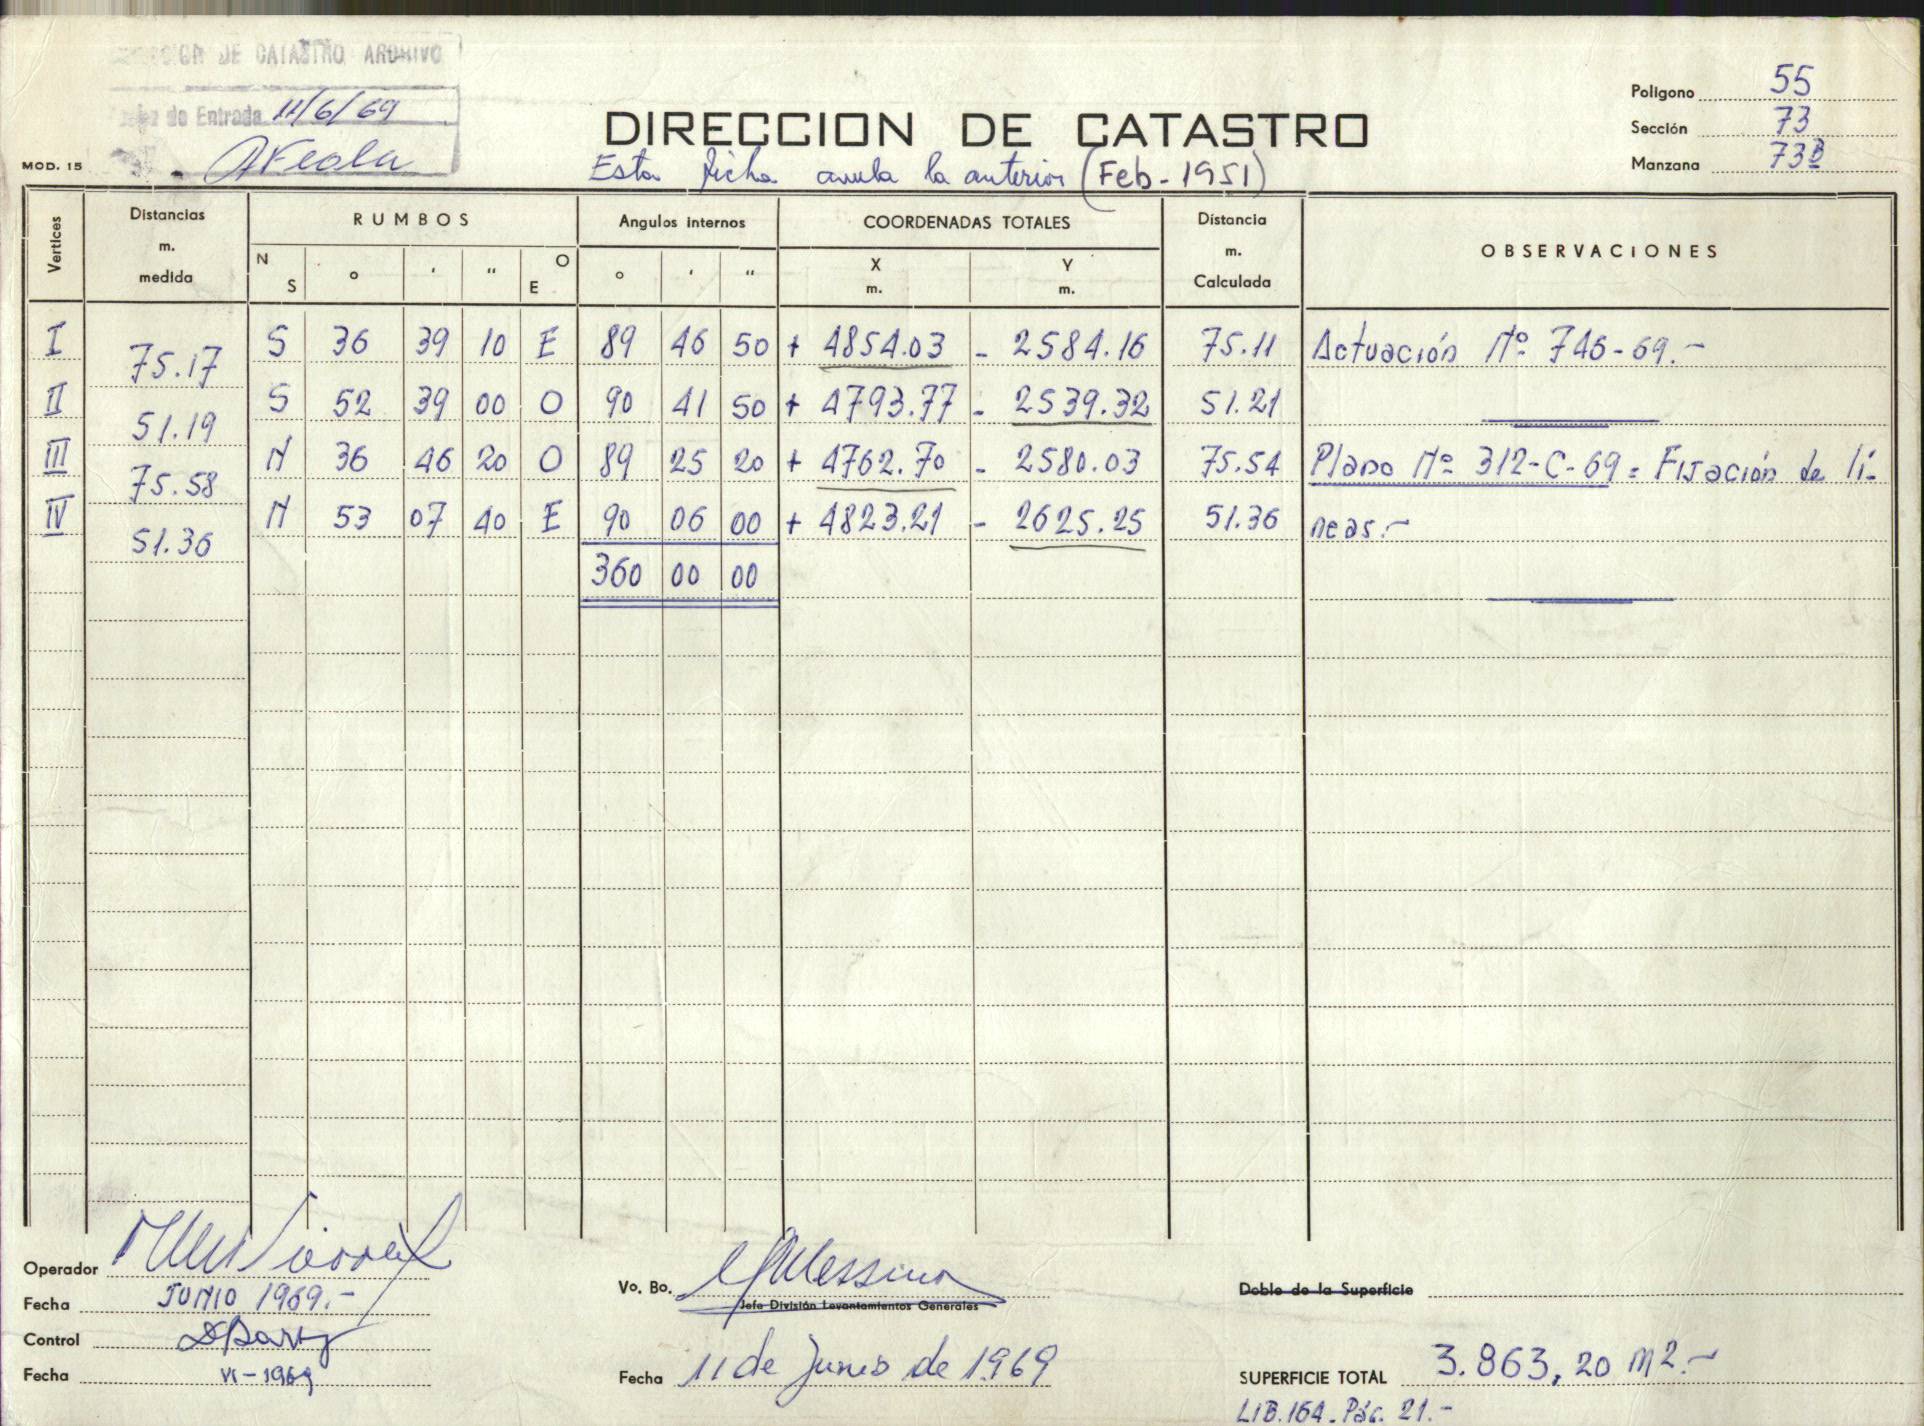 DE CATASTRO ARCHIVO
de Entrada 11/6/69
MOD. 15
DIRECCION DE CATASTRO
Esta ficha anula la anterior (Feb-1951)
Polígono 55
Sección 73
Manzana 73B
Vertices Distancias m. medida RUMBOS Angulos internos COORDENADAS TOTALES Distancia m. Calculada OBSERVACIONES
N S ° ' " O E ° ' " X m. Y m.
I 75.17 S 36 39 10 E 89 46 50 + 4854.03 - 2584.16 75.11 Actuación Nº 746-69.-
II 51.19 S 52 39 00 O 90 41 50 + 4793.77 - 2539.32 51.21
III 75.58 N 36 46 20 O 89 25 20 + 4762.70 - 2580.03 75.54 Plano Nº 312-C-69 = Fijación de lí-
IV 51.36 N 53 07 40 E 90 06 00 + 4823.21 - 2625.25 51.36 neas.-
360 00 00
Operador
Fecha JUNIO 1969.-
Control
Fecha VI-1969
Vo. Bo.
Jefe División Levantamientos Generales
Fecha 11 de Junio de 1969
Doble de la Superficie
SUPERFICIE TOTAL 3.863,20 m2.-
LIB.164. Pág. 21.-